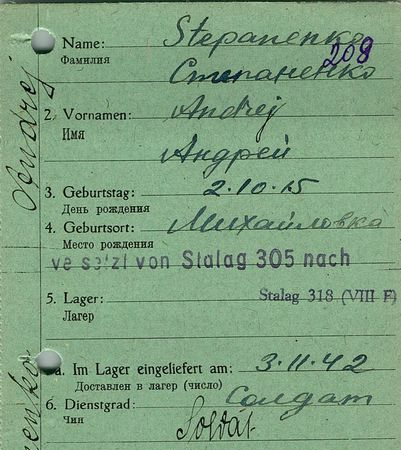 Name: Stepanenko
Фамилия
208
Степаненко
2. Vornamen: Andrej
Имя
Андрей
3. Geburtstag: 2.10.15
День рождения
4. Geburtsort: Михайловка
Место рождения
ve se zt von Stalag 305 nach
5. Lager: Stalag 318 (VIII F)
Лагер
a. Im Lager eingeliefert am: 3.11.42
Доставлен в лагер (число)
6. Dienstgrad: Солдат
Чин
Soldat
Andrej
enko